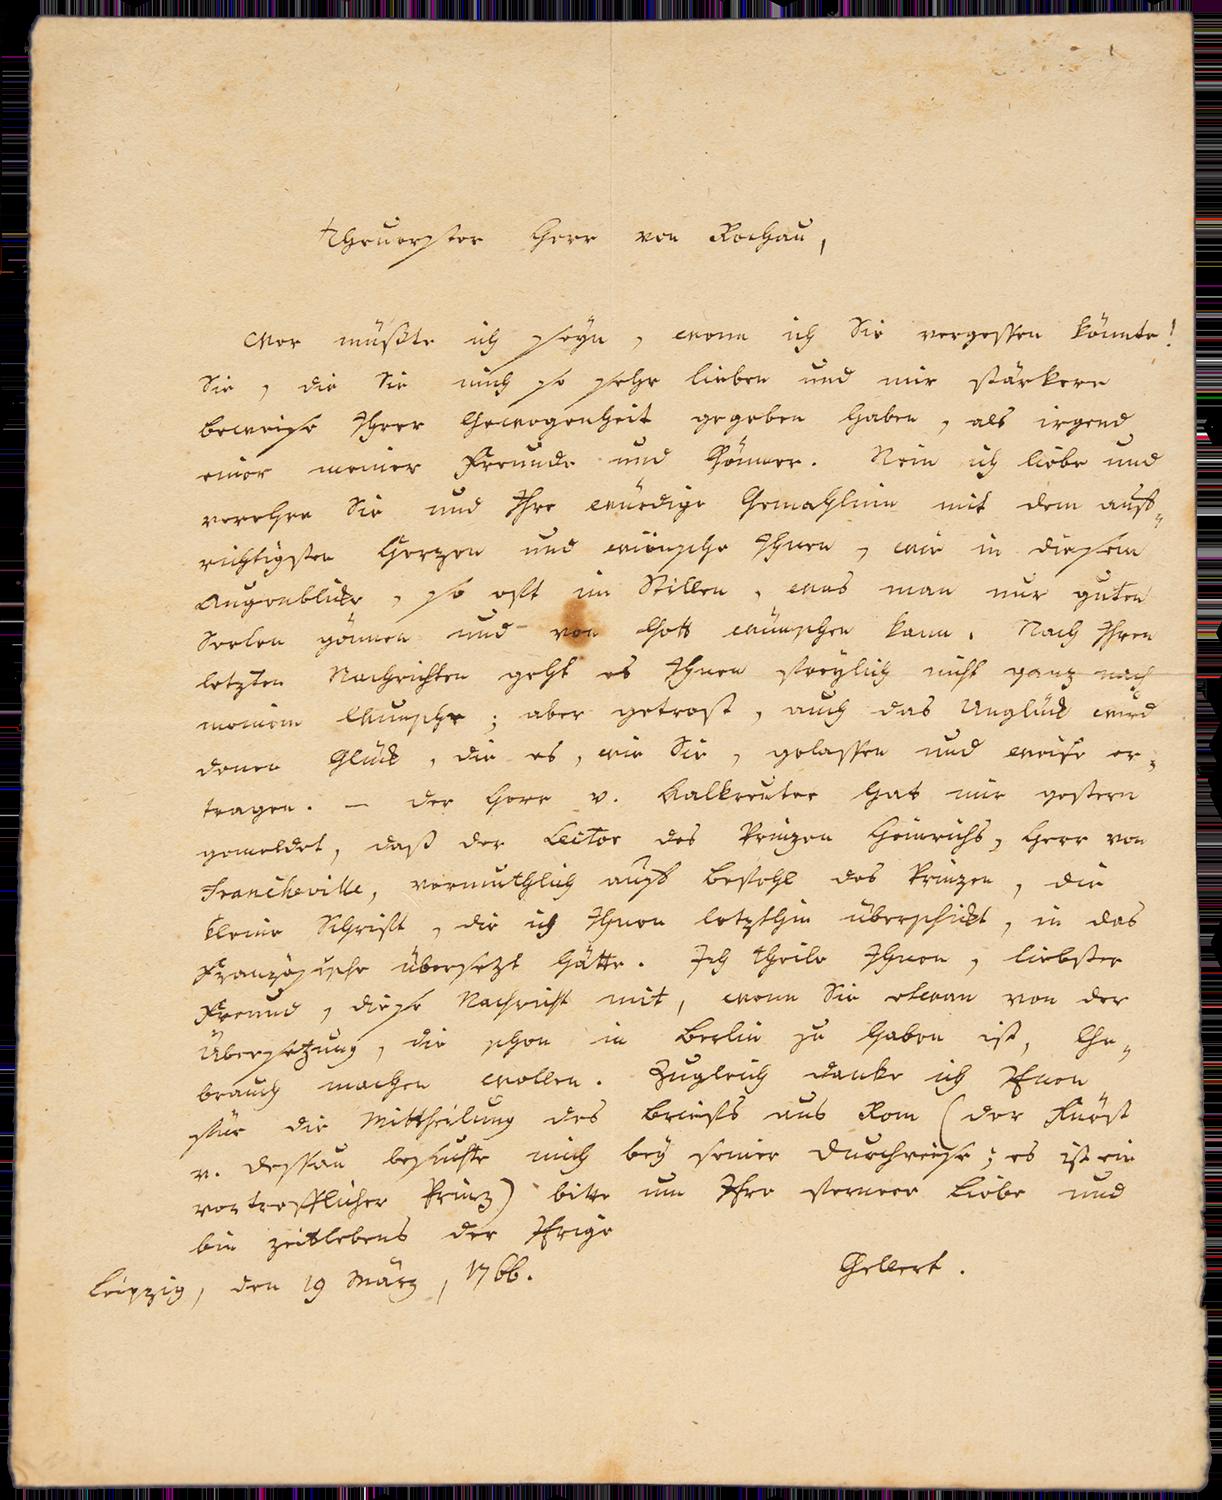 Theuerster Herr von Rochau,
Wer müßte ich seyn, wenn ich Sie vergessen könnte!
Sie, die Sie mich so sehr lieben und mir stärkere
Beweise Ihrer Gewogenheit gegeben haben, als irgend
einer meiner Freunde und Gönner. Nein ich liebe und
verehre Sie und Ihre würdige Gemahlinn mit dem auf-
richtigsten Herzen und wünsche Ihnen, wie in diesem
Augenblicke, so oft im Stillen, was man nur guten
Seelen gönnen und von Gott wünschen kann. Nach Ihren
letzten Nachrichten geht es Ihnen freylich nicht ganz nach
meinem Wunsche; aber getrost, auch das Unglück wird
denen Glück, die es, wie Sie, gelassen und weise er-
tragen. – Der Herr v. Kalkreuter hat mir gestern
gemeldet, daß der Lector des Prinzen Heinrichs, Herr von
Francheville, vermuthlich auf Befehl des Prinzen, die
kleine Schrift, die ich Ihnen letzthin überschickt, in das
Französische übersetzt hätte. Ich theile Ihnen, liebster
Freund, diese Nachricht mit, wenn Sie etwan von der
Übersetzung, die schon in Berlin zu haben ist, Ge-
brauch machen wollen. Zugleich danke ich Ihnen
für die Mittheilung des Briefs aus Rom (der Fürst
v. Dessau besuchte mich bey seiner Durchreise; es ist ein
vortrefflicher Prinz) bitte um Ihre fernere Liebe und
bin zeitlebens der Ihrige
Gellert.
Leipzig, den 19 März, 1766.